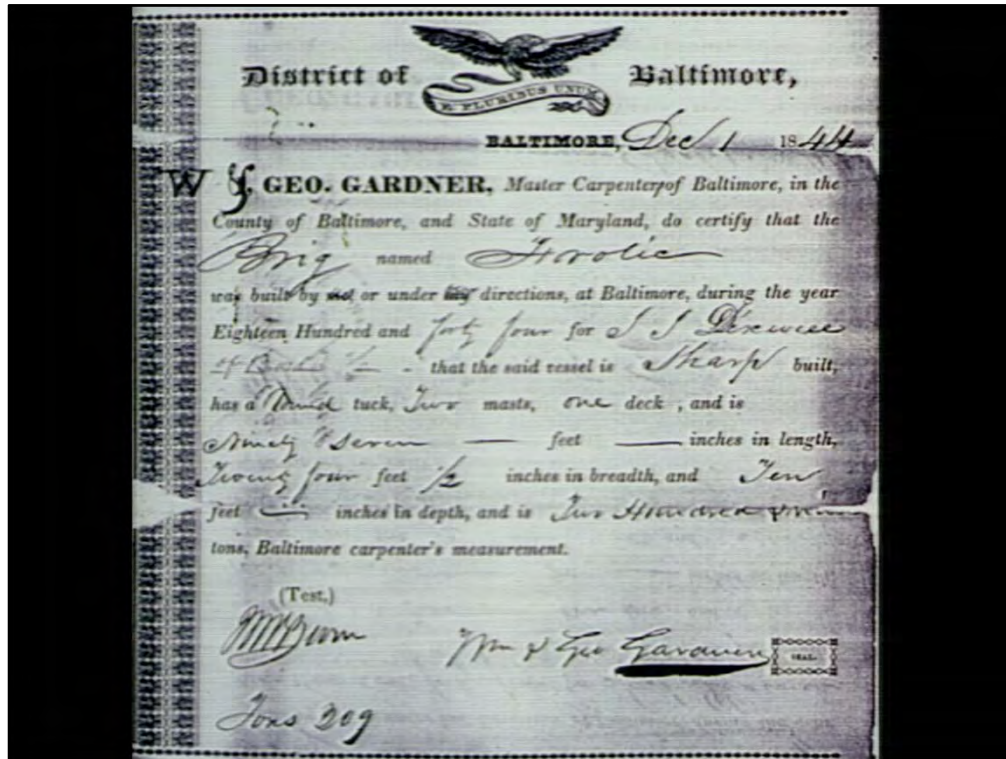 District of Baltimore,
E. PLURIBUS UNUM
BALTIMORE, Dec 1 1844
W & GEO. GARDNER, Master Carpenter of Baltimore, in the
County of Baltimore, and State of Maryland, do certify that the
Brig named Frolic
was built by or under directions, at Baltimore, during the year
Eighteen Hundred and forty four for
of 1/2 - that the said vessel is Sharp built,
has a tuck, Two masts, one deck, and is
Ninety Seven — feet — inches in length,
Twenty four feet 1/2 inches in breadth, and Ten
feet — inches in depth, and is Two Hundred nine
tons, Baltimore carpenter's measurement.
(Test,)
Wm & Geo Gardner SEAL.
Tons 209